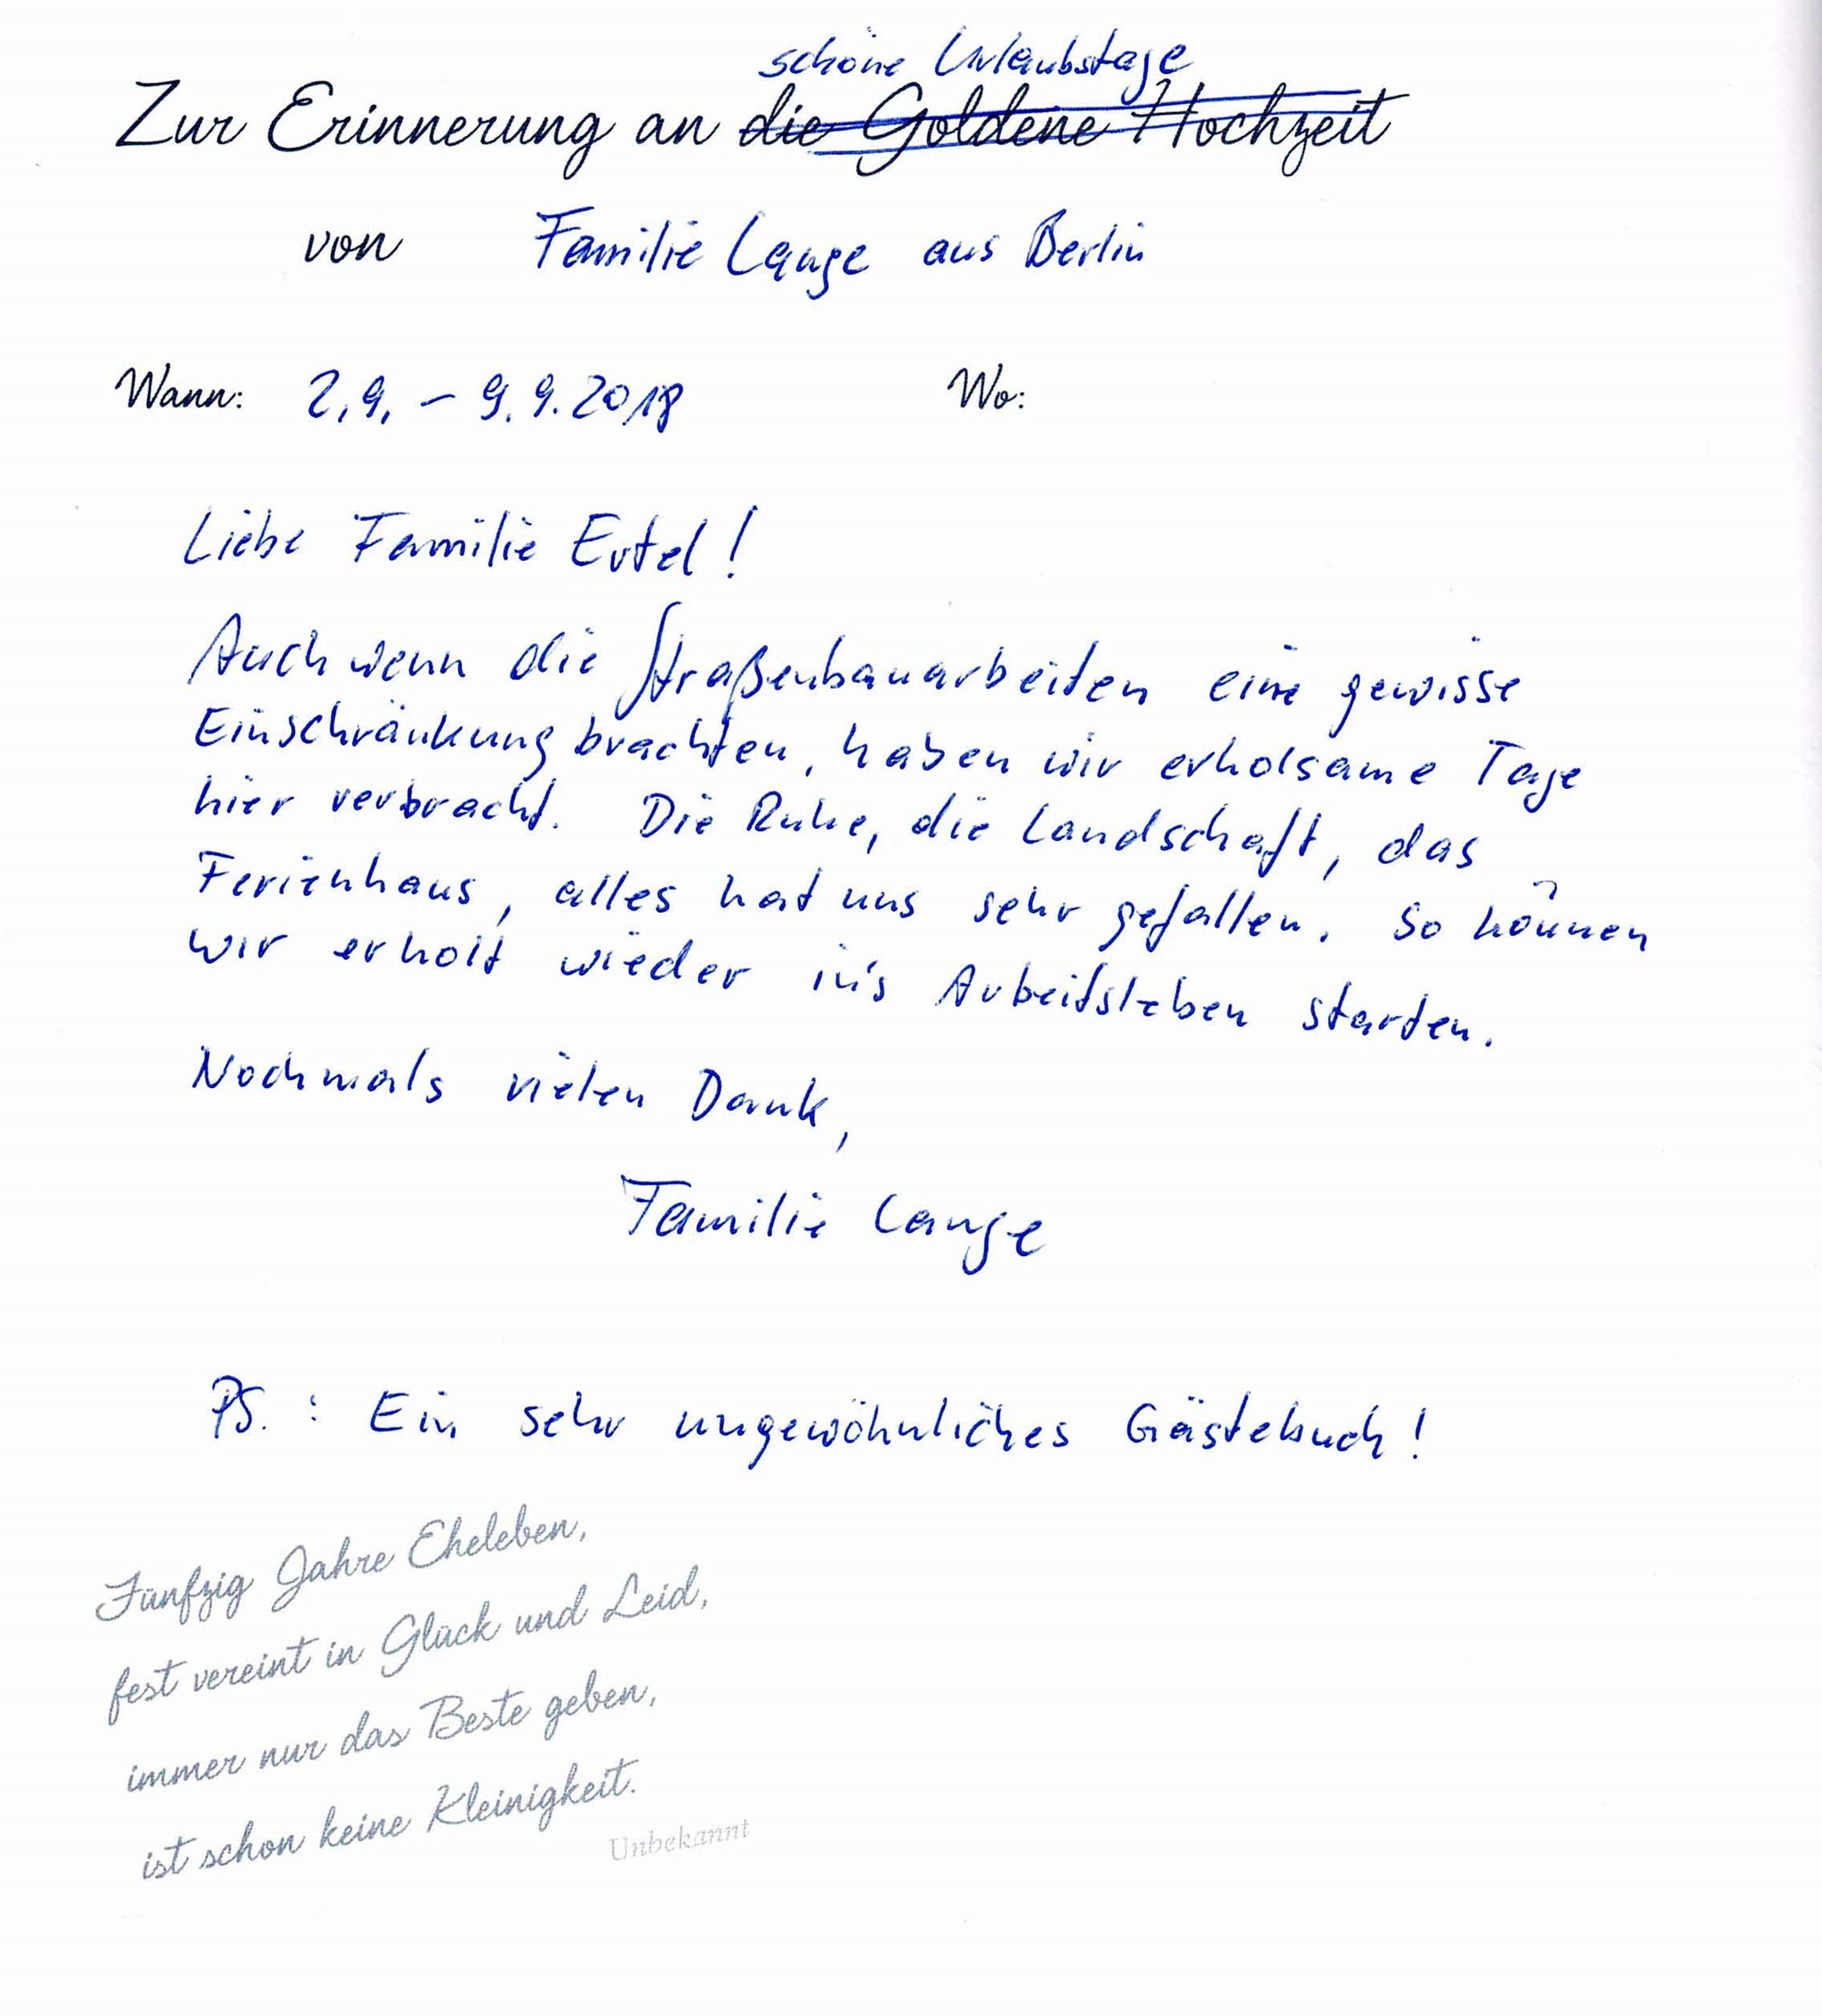 schöne Urlaubstage
Zur Erinnerung an die Goldene Hochzeit
von Familie Lange aus Berlin
Wann: 2.9. – 9.9.2018 Wo:
Liebe Familie Ertel!
Auch wenn die Straßenbauarbeiten eine gewisse
Einschränkung brachten, haben wir erholsame Tage
hier verbracht. Die Ruhe, die Landschaft, das
Ferienhaus, alles hat uns sehr gefallen. So können
wir erholt wieder in's Arbeitsleben starten.
Nochmals vielen Dank,
Familie Lange
PS.: Ein sehr ungewöhnliches Gästebuch!
Fünfzig Jahre Eheleben,
fest vereint in Glück und Leid,
immer nur das Beste geben,
ist schon keine Kleinigkeit.
Unbekannt